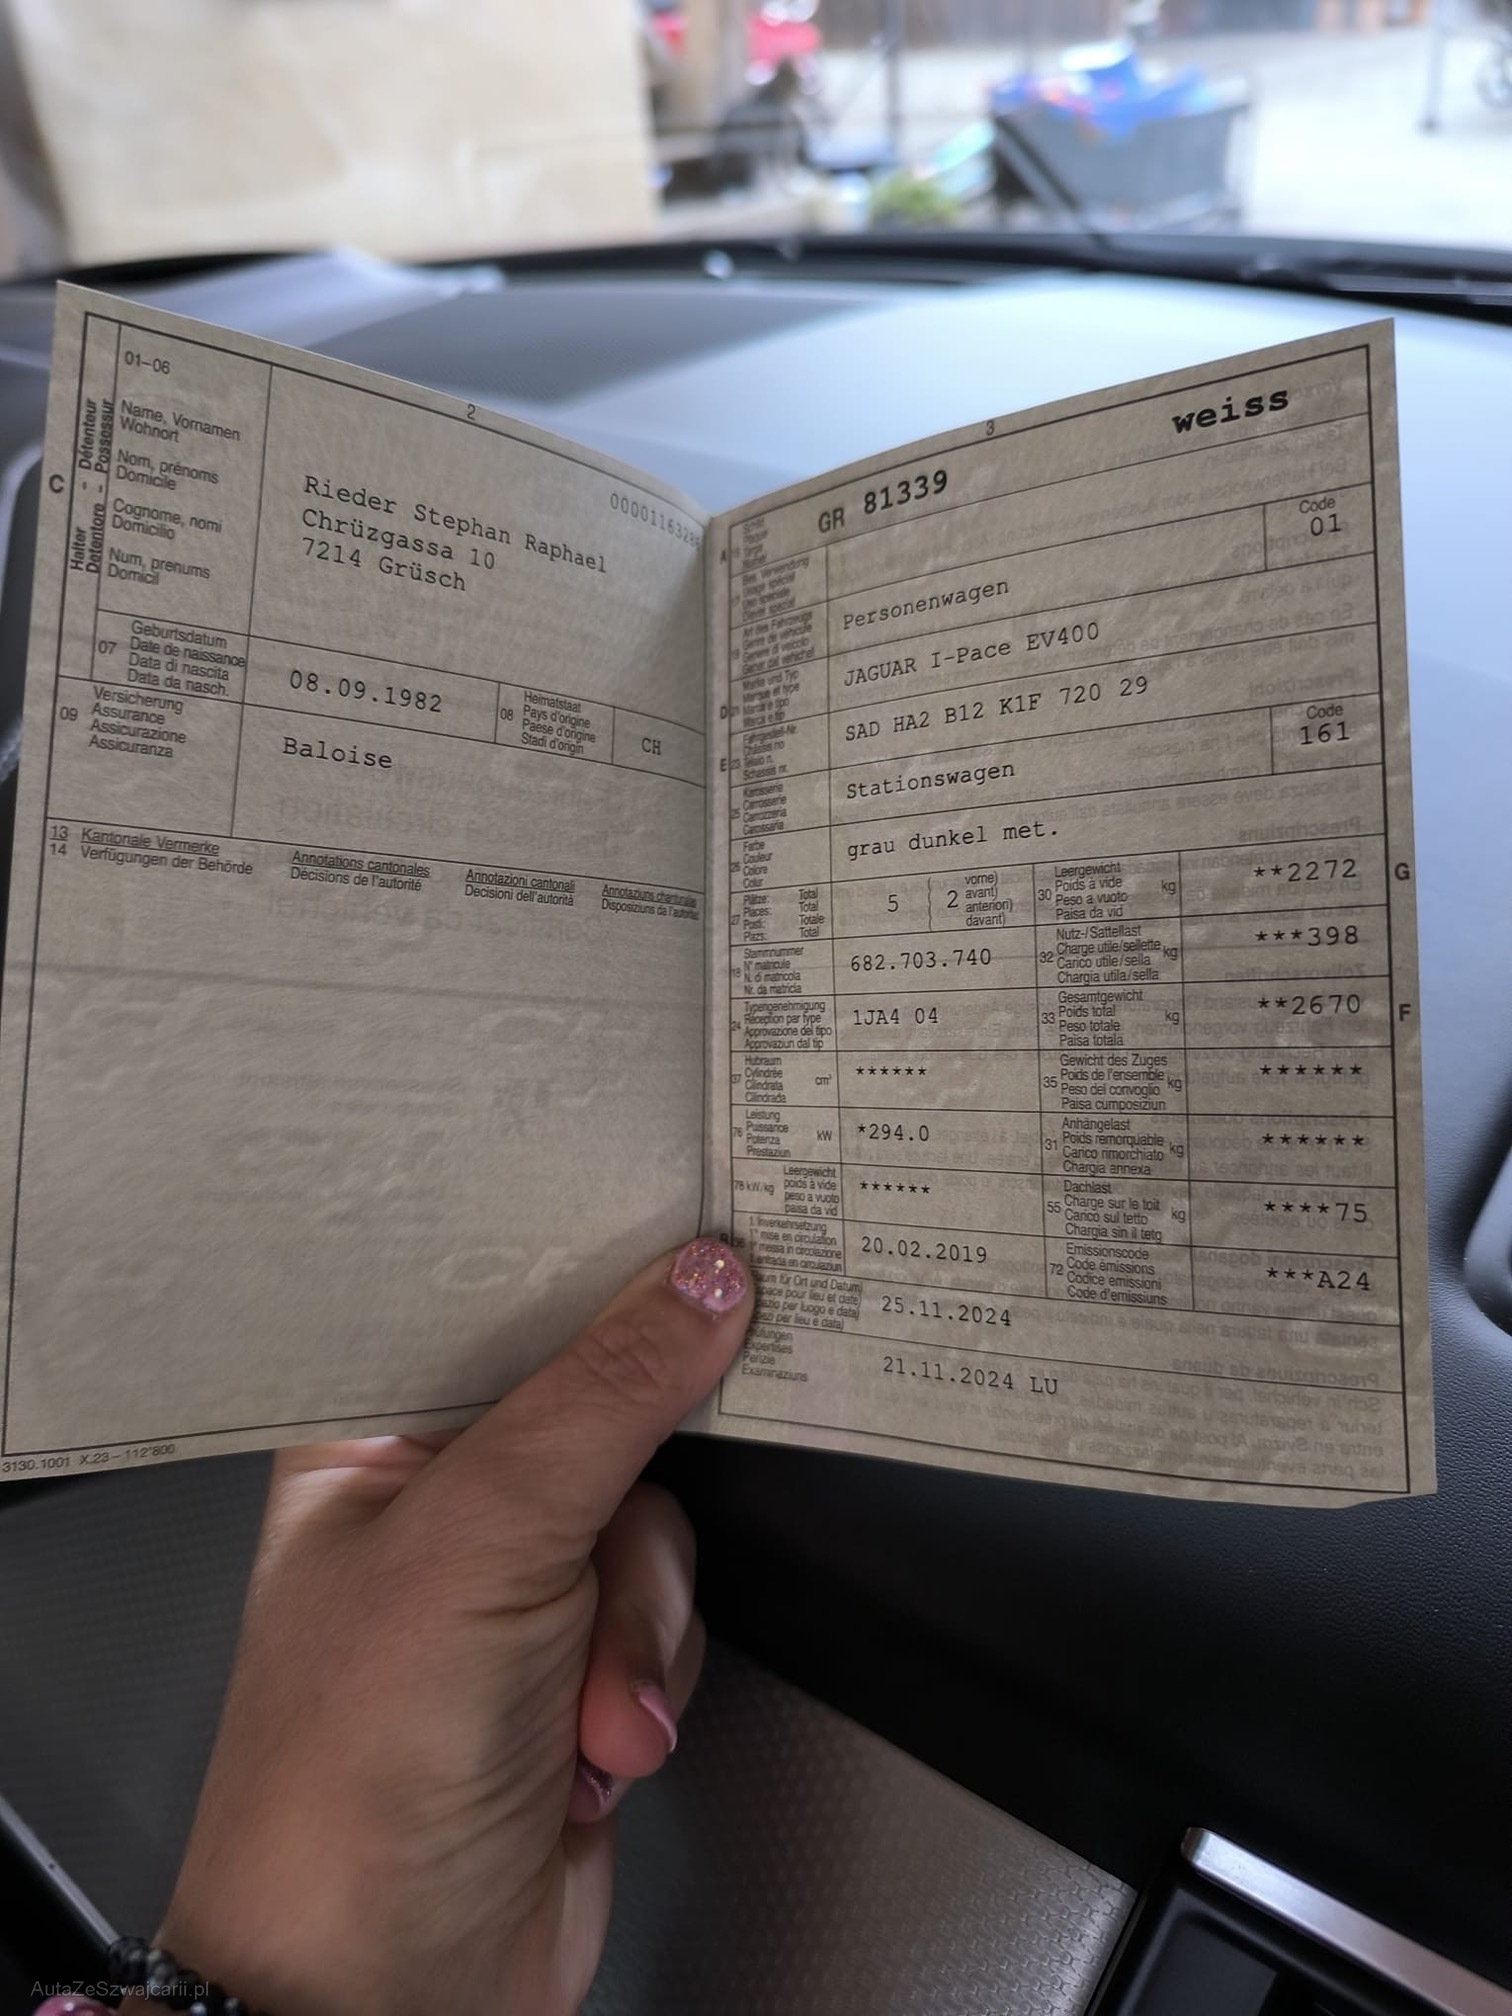 2
01–06
C
Halter - Détenteur
Detentore - Possessur
Name, Vornamen
Wohnort
Nom, prénoms
Domicile
Cognome, nomi
Domicilio
Num, prenums
Domicil
Rieder Stephan Raphael
Chrüzgassa 10
7214 Grüsch
07
Geburtsdatum
Date de naissance
Data di nascita
Data da nasch.
08.09.1982
08
Heimatstaat
Pays d'origine
Paese d'origine
Stadi d'origin
CH
09
Versicherung
Assurance
Assicurazione
Assicuranza
Baloise
13 Kantonale Vermerke Annotations cantonales Annotazioni cantonali Annotaziuns chantunalas
14 Verfügungen der Behörde Décisions de l'autorité Decisioni dell'autorità
3130.1001 X.23–112'800
3
weiss
A
GR 81339
Code
01
Personenwagen
D
JAGUAR I-Pace EV400
E
SAD HA2 B12 K1F 720 29
Code
161
Stationswagen
Farbe
Couleur
Colore
Color
grau dunkel met.
27
Plätze: Total
Places: Total
Posti: Totale
Plazs: Total
5 2
vorne)
avant)
anteriori)
davant)
30
Leergewicht
Poids à vide
Peso a vuoto
Paisa da vid
kg
**2272
G
Stammnummer
N° matricule
N. di matricola
Nr. da matricla
682.703.740
32
Nutz-/Sattellast
Charge utile/sellette
Carico utile/sella
Chargia utila/sella
kg
***398
24
Typengenehmigung
Réception par type
Approvazione del tipo
Approvaziun dal tip
1JA4 04
33
Gesamtgewicht
Poids total
Peso totale
Paisa totala
kg
**2670
F
37
Hubraum
Cylindrée
Cilindrata
Cilindrada
cm³
******
35
Gewicht des Zuges
Poids de l'ensemble
Peso del convoglio
Paisa cumposiziun
kg
******
76
Leistung
Puissance
Potenza
Prestaziun
kW
*294.0
31
Anhängelast
Poids remorquable
Carico rimorchiato
Chargia annexa
kg
******
78 kW/kg
Leergewicht
poids à vide
peso a vuoto
paisa da vid
******
55
Dachlast
Charge sur le toit
Carico sul tetto
Chargia sin il tetg
kg
****75
1. Inverkehrsetzung
1re mise en circulation
20.02.2019
72
Emissionscode
Code émissions
Codice emissioni
Code d'emissiuns
***A24
25.11.2024
Expertises
Perizie
Examinaziuns
21.11.2024 LU
AutaZeSzwajcarii.pl